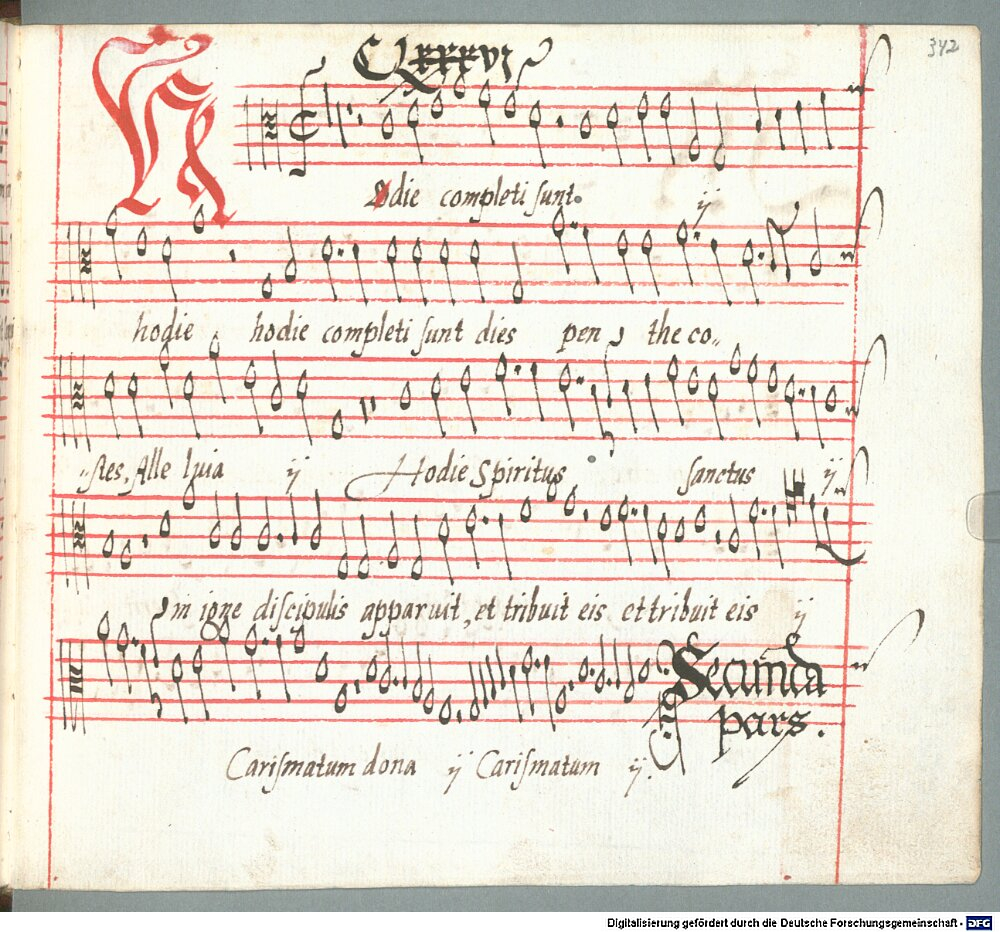 CLXXXVI
342
H
odie completi sunt. ij
hodie hodie completi sunt dies pen the co„
„stes, Alle luia ij Hodie Spiritus sanctus ij
in igne discipulis apparuit, et tribuit eis et tribuit eis ij
Carismatum dona ij Carismatum ij.
Secunda
pars.
Digitalisierung gefördert durch die Deutsche Forschungsgemeinschaft - DFG